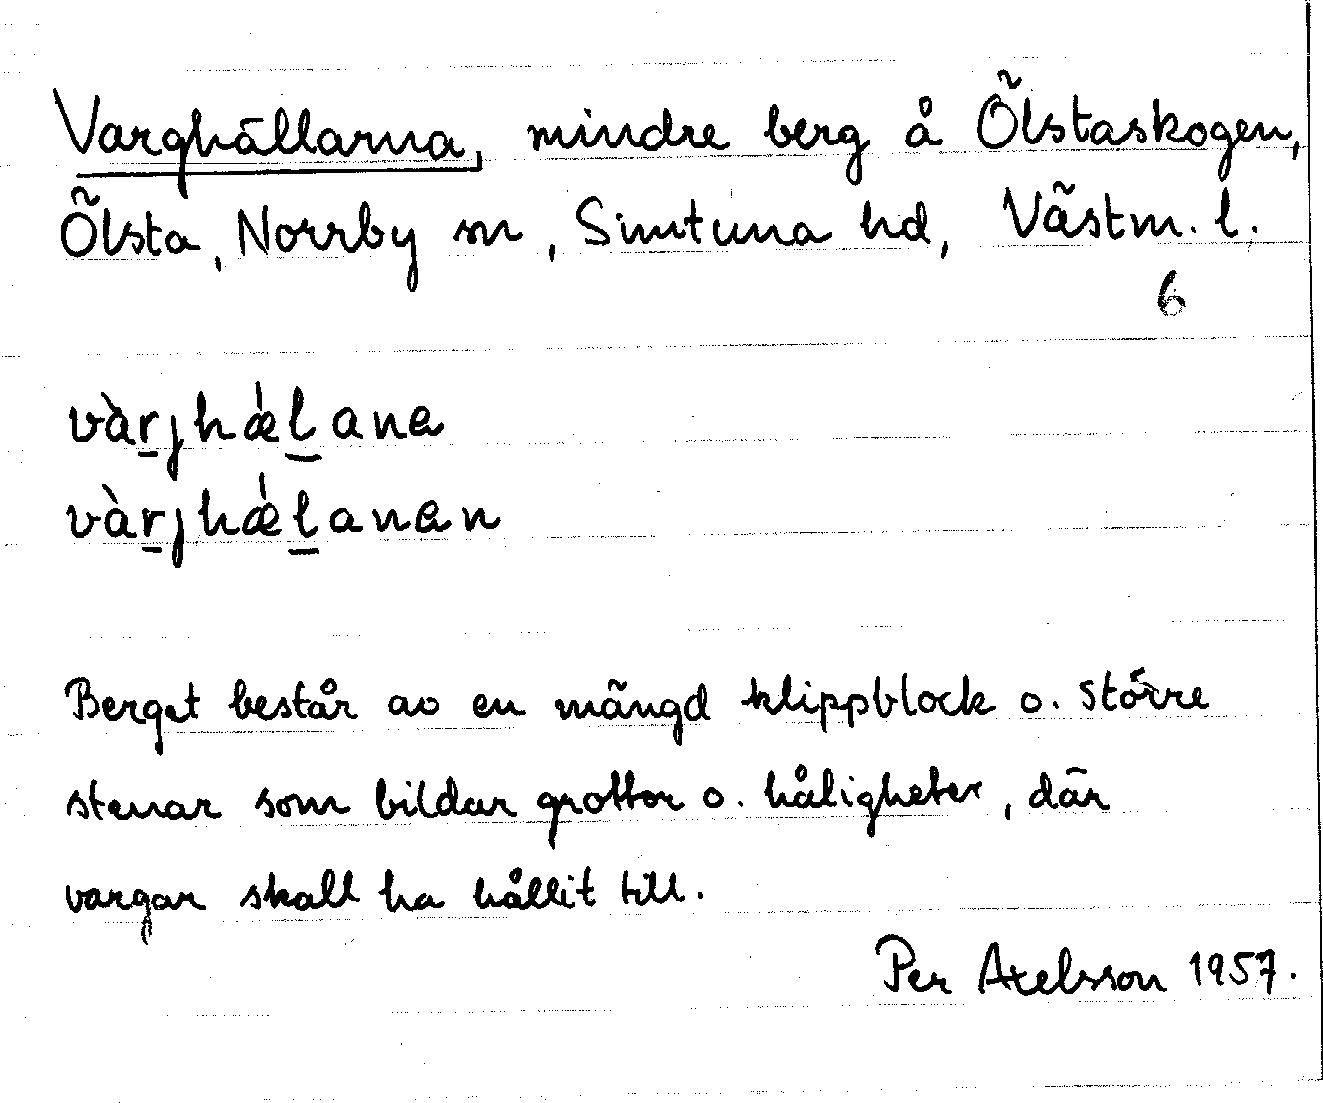 Varghällarna, mindre berg å Ölstaskogen,
Ölsta, Norrby sn, Simtuna hd, Västm. l.
6
vàr̠jhǽl̠ana
vàr̠jhǽl̠anan
Berget består av en mängd klippblock o. större
stenar som bildar grottor o. håligheter, där
vargar skall ha hållit till.
Per Axelsson 1957.